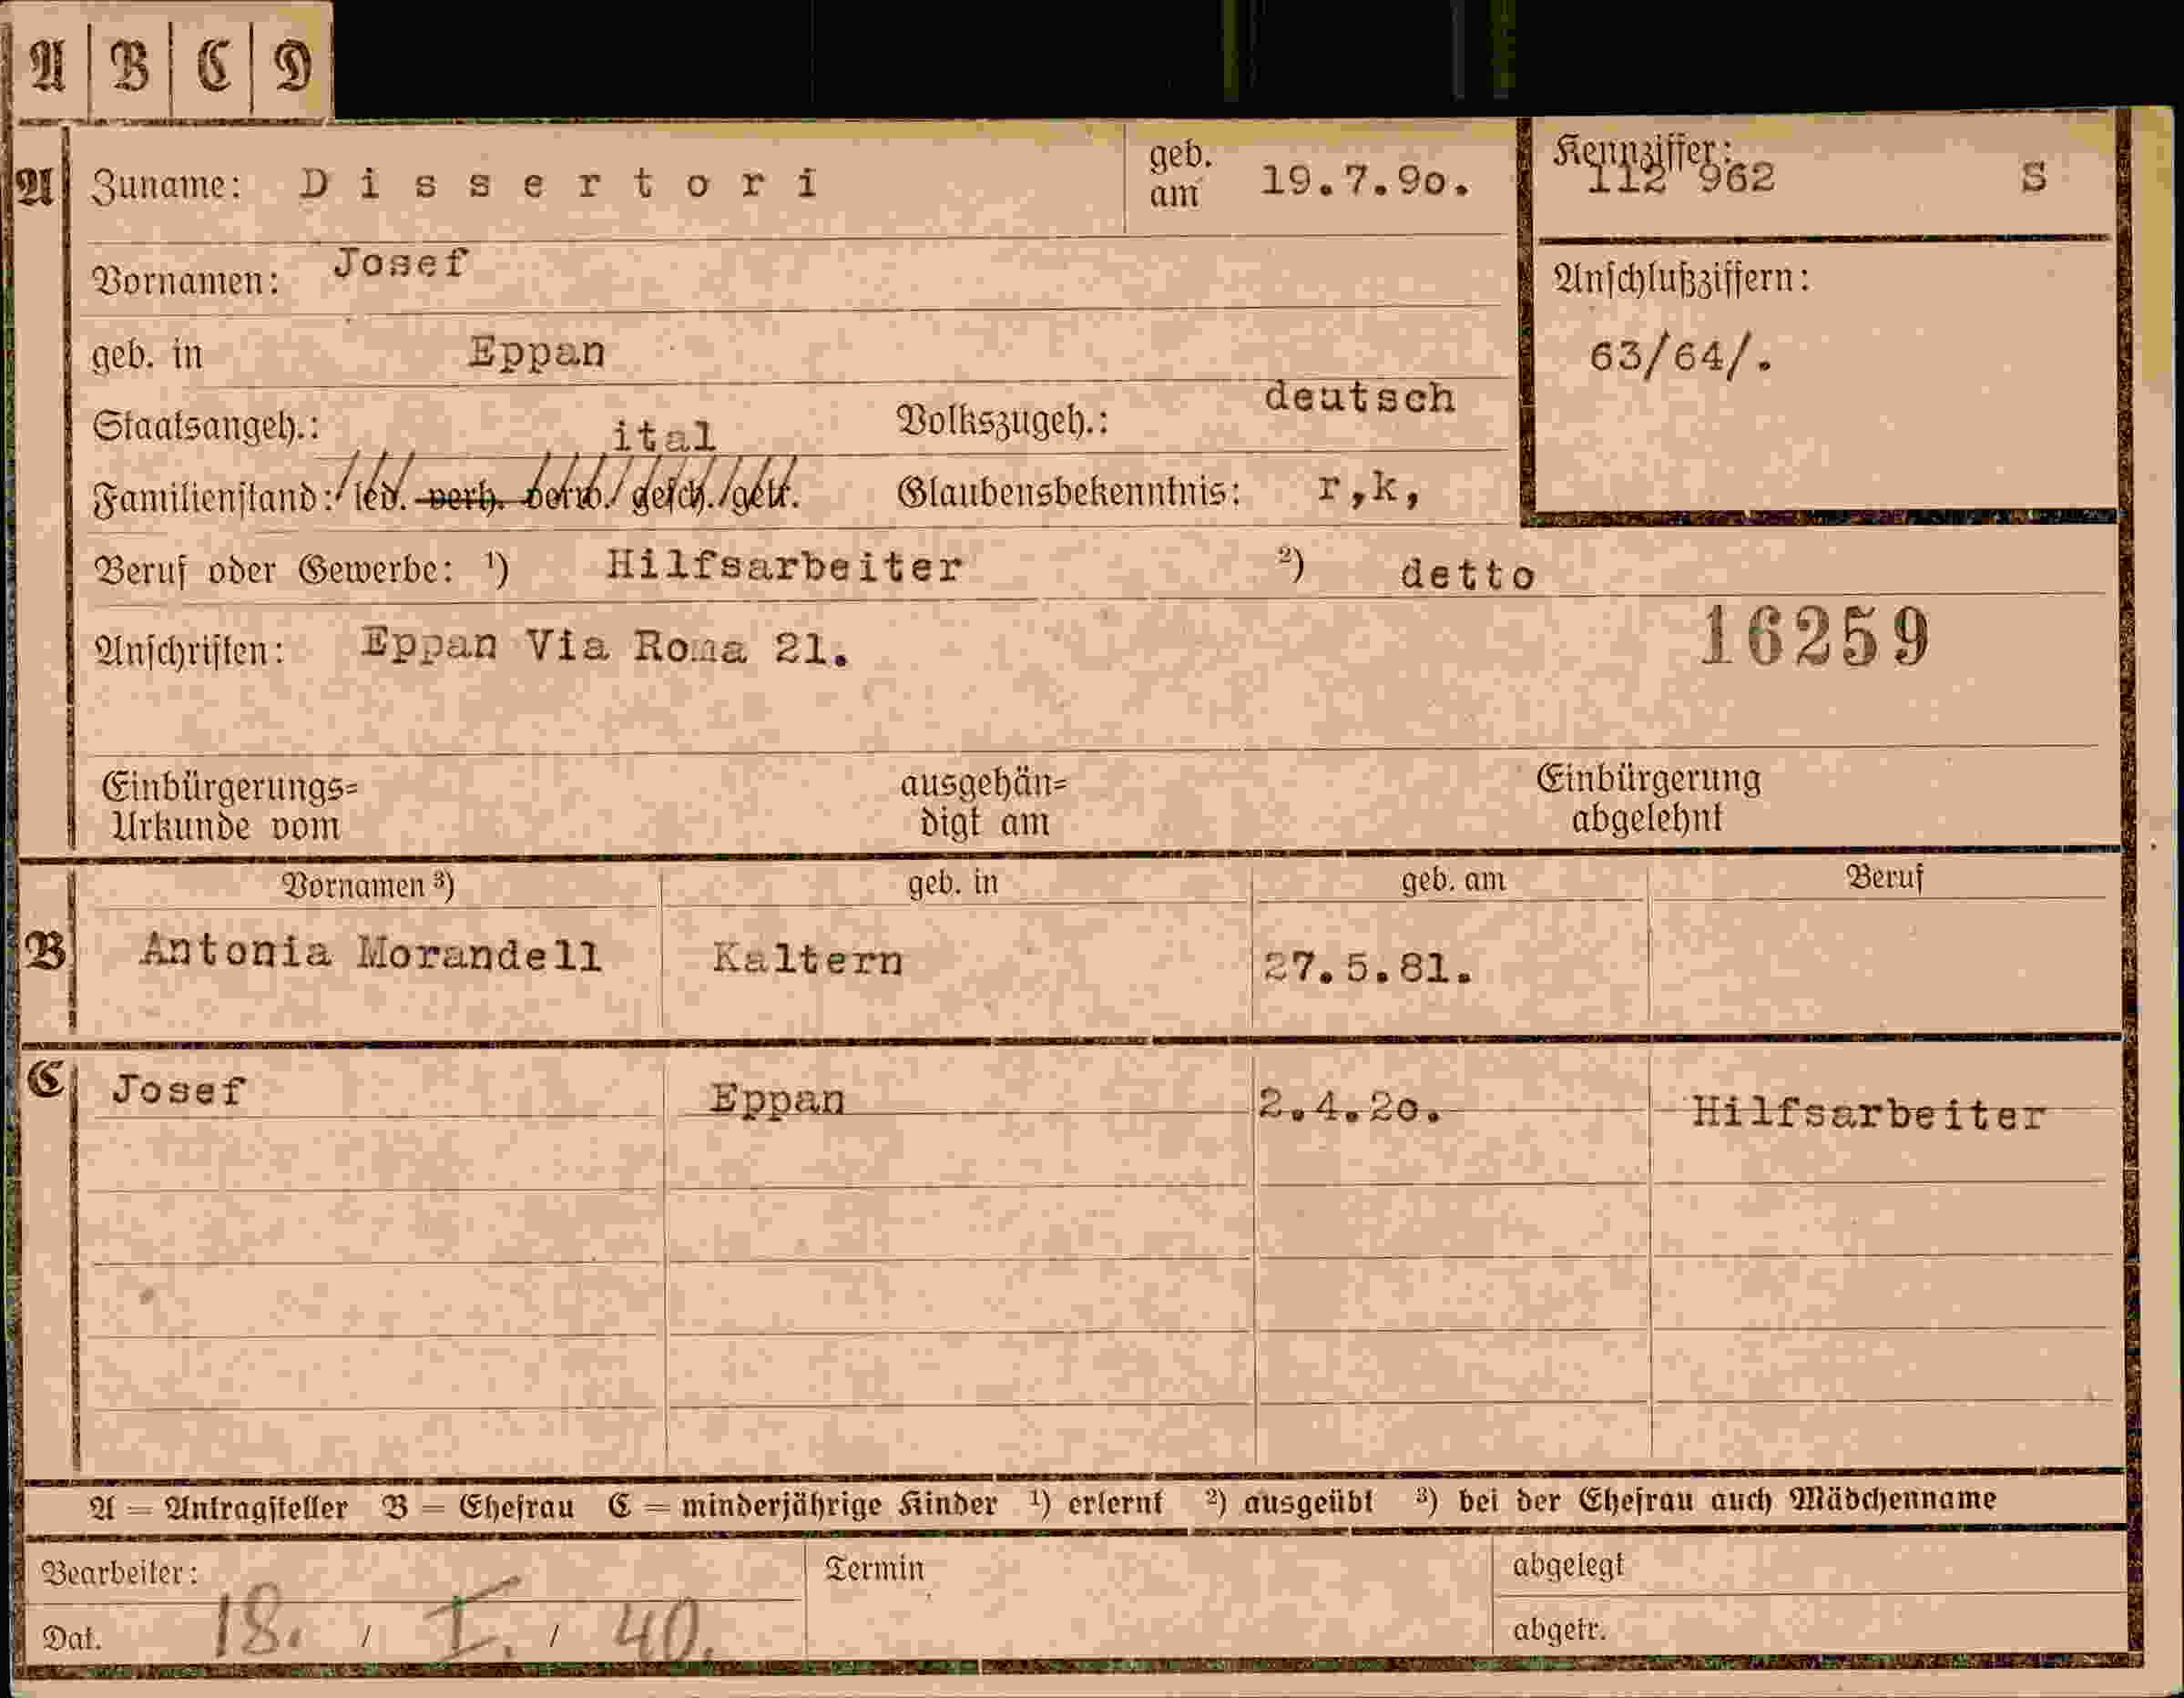 A B C D
A Zuname: Dissertori geb. am 19.7.90. Kennziffer: 112 962 S
Vornamen: Josef
Anschlußziffern:
geb. in Eppan 63/64/.
Staatsangeh.: ital Volkszugeh.: deutsch
Familienstand: led. verh. verw. gesch. getr. Glaubensbekenntnis: r,k,
Beruf oder Gewerbe: 1) Hilfsarbeiter 2) detto
Anschriften: Eppan Via Roma 21. 16259
Einbürgerungs= ausgehän= Einbürgerung
Urkunde vom digt am abgelehnt
Vornamen 3) geb. in geb. am Beruf
B Antonia Morandell Kaltern 27.5.81.
C Josef Eppan 2.4.20. Hilfsarbeiter
A = Antragsteller B = Ehefrau C = minderjährige Kinder 1) erlernt 2) ausgeübt 3) bei der Ehefrau auch Mädchenname
Bearbeiter: Termin abgelegt
Dat. 18. / I. / 40. abgetr.